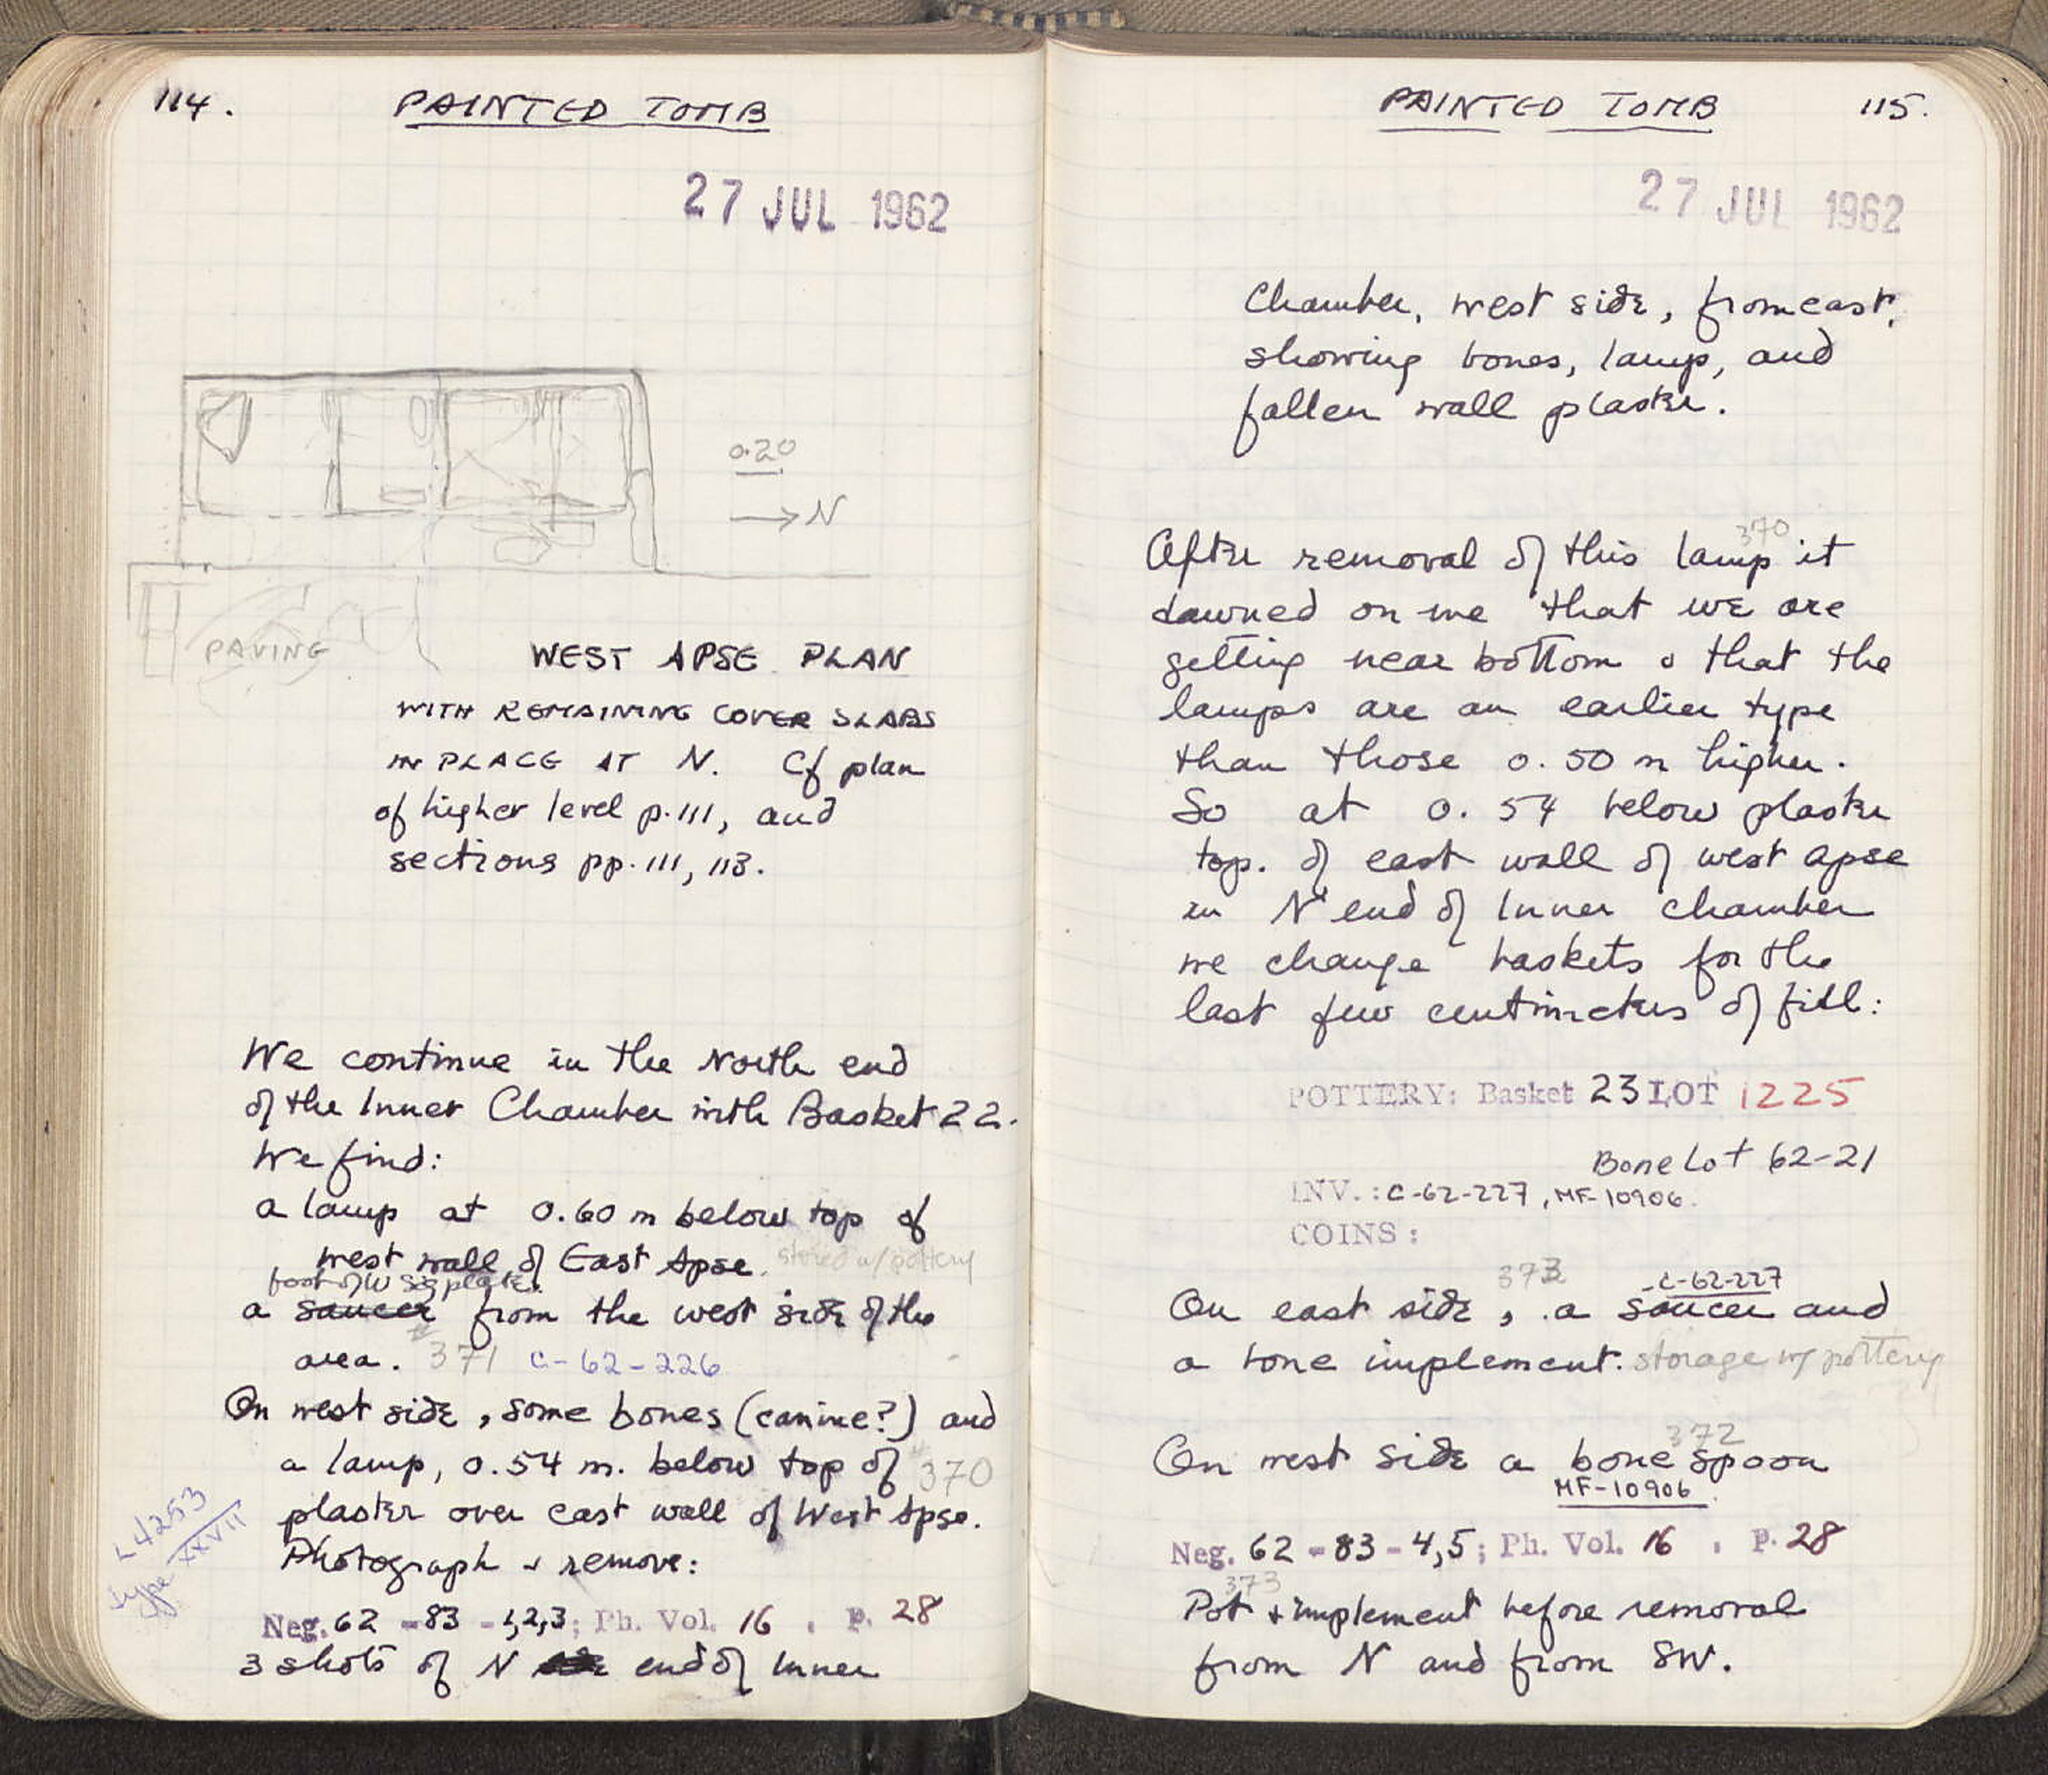 114.
PAINTED TOMB
27 JUL 1962
0.20
→ N
PAVING
WEST APSE PLAN
WITH REMAINING COVER SLABS
IN PLACE AT N. Cf plan
of higher level p.111, and
sections pp.111, 113.
We continue in the North end
of the Inner Chamber with Basket 22.
We find:
a lamp at 0.60 m below top of
west wall of East Apse. stored w/ pottery
foot of W Sig plate
a saucer from the west side of the
area. 371 C-62-226
On west side, some bones (canine?) and
a lamp, 0.54 m. below top of 370
plaster over east wall of West Apse.
L4253
type XXVII
Photograph + remove:
Neg. 62-83-1,2,3; Ph. Vol. 16, p. 28
3 shots of N end of Inner
PAINTED TOMB
115.
27 JUL 1962
Chamber, west side, from east,
showing bones, lamp, and
fallen wall plaster.
370
After removal of this lamp it
dawned on me that we are
getting near bottom & that the
lamps are an earlier type
than those 0.50 m higher.
So at 0.54 below plaster
top. of east wall of west apse
in N end of Inner Chamber
we change baskets for the
last few centimeters of fill:
POTTERY: Basket 23 LOT 1225
Bone Lot 62-21
INV.: C-62-227, MF-10906.
COINS:
373 C-62-227
On east side, a saucer and
a bone implement. storage w/ pottery
372
On west side a bone spoon
MF-10906
Neg. 62-83-4,5; Ph. Vol. 16, P. 28
373
Pot + implement before removal
from N and from SW.